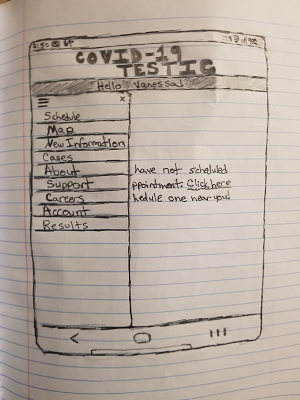 COVID-19
TESTIG
Hello Vanessa!
x
Schedule
Map
New Information
Cases
About
Support
Careers
Account
Results
have not scheduled
ppointment. Click here
hedule one near you!